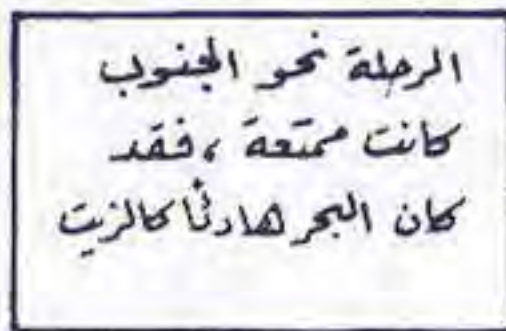 الرحلة نحو الجنوب
كانت ممتعة ، فقد
كان البحر هادئاً كالزيت